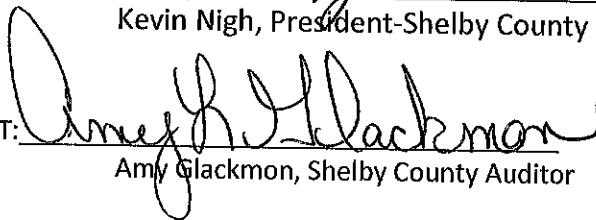 Kevin Nigh, President-Shelby County
T: Amy L Glackmon
Amy Glackmon, Shelby County Auditor